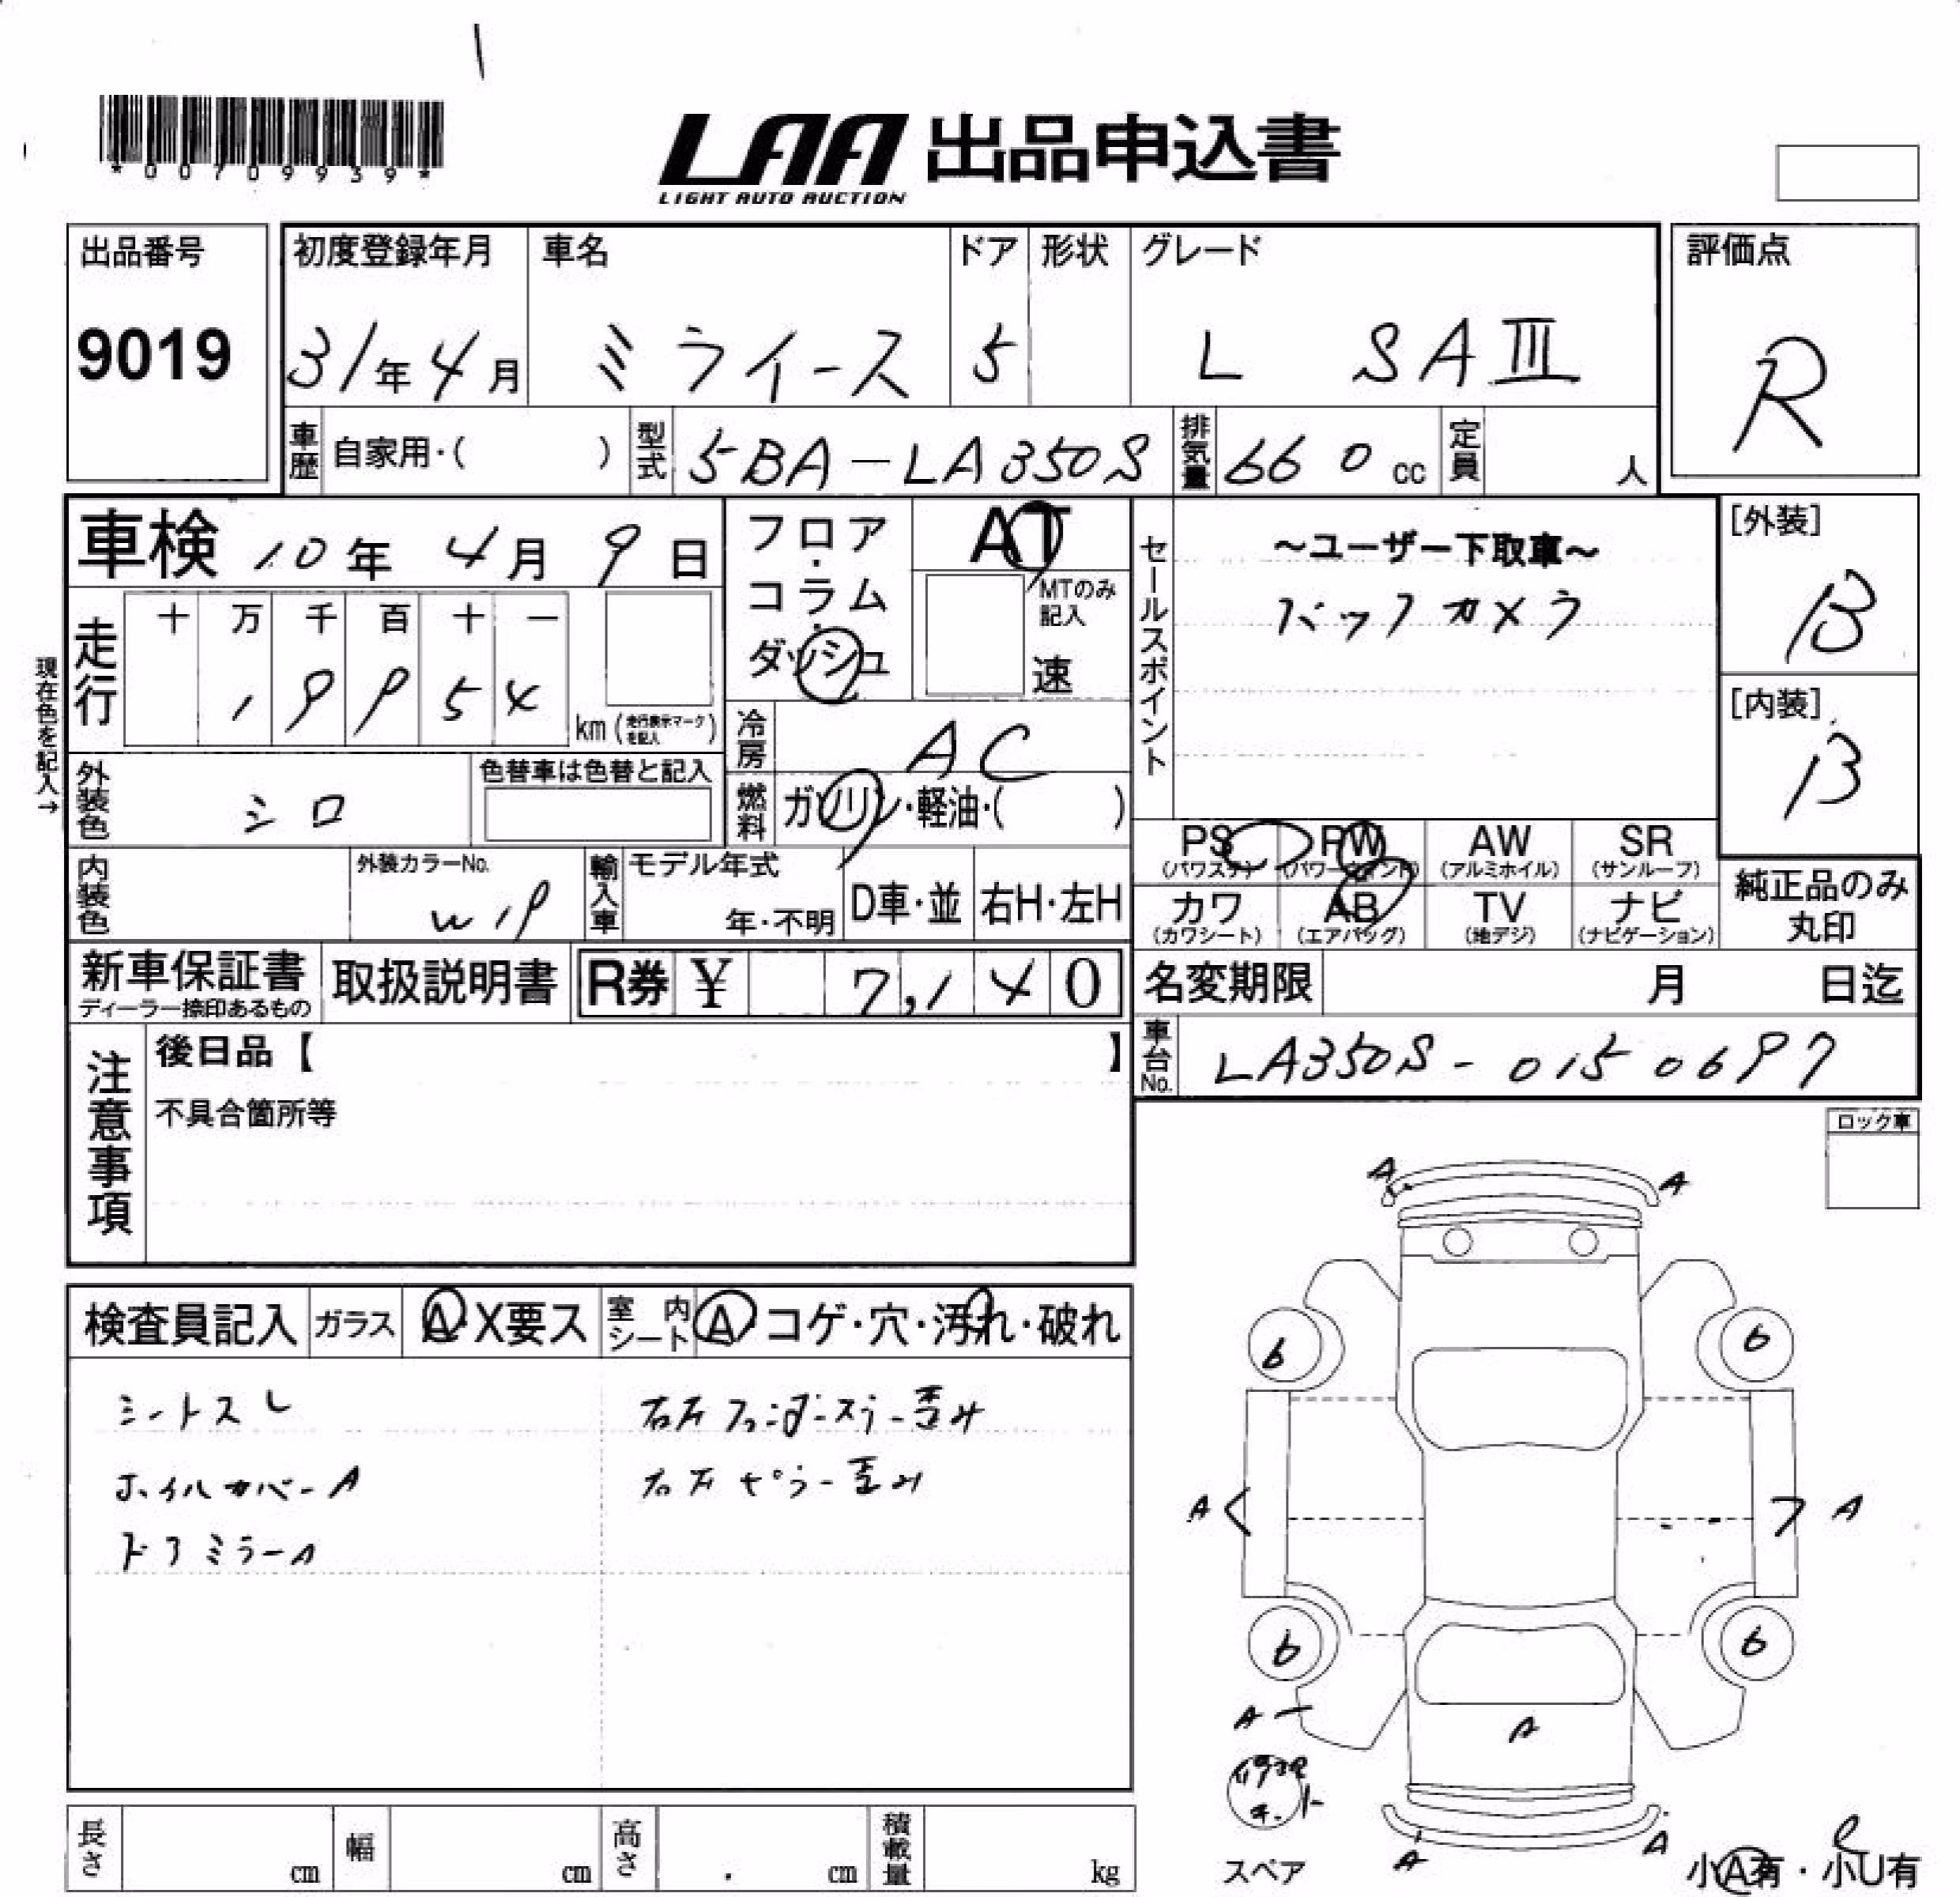 *00709939*
LAA 出品申込書
LIGHT AUTO AUCTION
出品番号
9019
初度登録年月
31年4月
車名
ミライース
ドア
5
形状
グレード
L SAⅢ
評価点
R
車歴
自家用・( )
型式
5BA-LA350S
排気量
660cc
定員
人
車検 10年 4月 9日
フロア・コラム・ダッシュ
AT
MTのみ記入
速
セールスポイント
~ユーザー下取車~
バックカメラ
[外装]
B
[内装]
B
現在色を記入→
走行
十 万 千 百 十 一
1 9 9 5 4
km(走行表示マークを記入)
冷房
AC
外装色
シロ
色替車は色替と記入
燃料
ガソリン・軽油・( )
内装色
外装カラーNo.
W19
輸入車
モデル年式
年・不明
D車・並
右H・左H
PS
(パワステ)
PW
(パワーウィンド)
AW
(アルミホイル)
SR
(サンルーフ)
カワ
(カワシート)
AB
(エアバッグ)
TV
(地デジ)
ナビ
(ナビゲーション)
純正品のみ
丸印
新車保証書
ディーラー捺印あるもの
取扱説明書
R券 ¥ 7,140
名変期限 月 日迄
車台No.
LA350S-0150697
注意事項
後日品【 】
不具合箇所等
ロック車
検査員記入
ガラス
A・X要ス
室内シート
A・コゲ・穴・汚れ・破れ
シートスレ
ホイルカバーA
ドアミラーA
右左フェンダーステー歪み
右左ピラー歪み
A
A
6
6
A
A
6
6
A
A
修理キット
スペア
A
A
小A有・小U有
長さ
cm
幅
cm
高さ
cm
積載量
kg